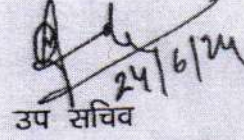 24/6/24
उप सचिव